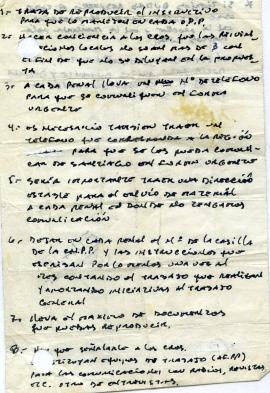 1.- TRATAR DE REPRODUCIR EL INSTRUCTIVO
PARA QUE LO MANEJEN EN CADA O.P.P.
2.- HACER CONCIENCIA A LOS CROS. QUE LAS
LOCALES NO SEAN MAS DE 3 CON
EL FIN DE QUE NO SE DILUYAN EN LA
TA
3.- A CADA PENAL LLEVA UN Nº DE TELEFONO
PARA QUE SE COMUNIQUEN EN FORMA
URGENTE
4.- ES NECESARIO TAMBIEN TRAER UN
TELEFONO QUE CORRESPONDA A LA REGIÓN
PARA QUE SE LES PUEDA COMUNI-
CAR DE SANTIAGO EN FORMA URGENTE
5.- SERÍA IMPORTANTE TRAER UNA DIRECCIÓN
ESTABLE PARA EL ENVÍO DE MATERIAL
A CADA PENAL EN DONDE NO TENGAMOS
COMUNICACIÓN
6.- DEJAR EN CADA PENAL EL Nº DE LA CASILLA
DE LA C.N.P.P. Y LAS INSTRUCCIONES QUE
ESCRIBAN POR LO MENOS UNA VEZ AL
MES CONTANDO EL TRABAJO QUE REALIZAN
Y APORTANDO INICIATIVAS AL TRABAJO
GENERAL
7.- LLEVA EL MAXIMO DE DOCUMENTOS
QUE PUEDAS REPRODUCIR.
8.- HAY QUE SEÑALARLE A LOS CROS.
EQUIPOS DE TRABAJO (AG.PP)
PARA LAS COMUNICACIONES CON RADIOS, REVISTAS
ETC. OTRO DE ENTREVISTAS.